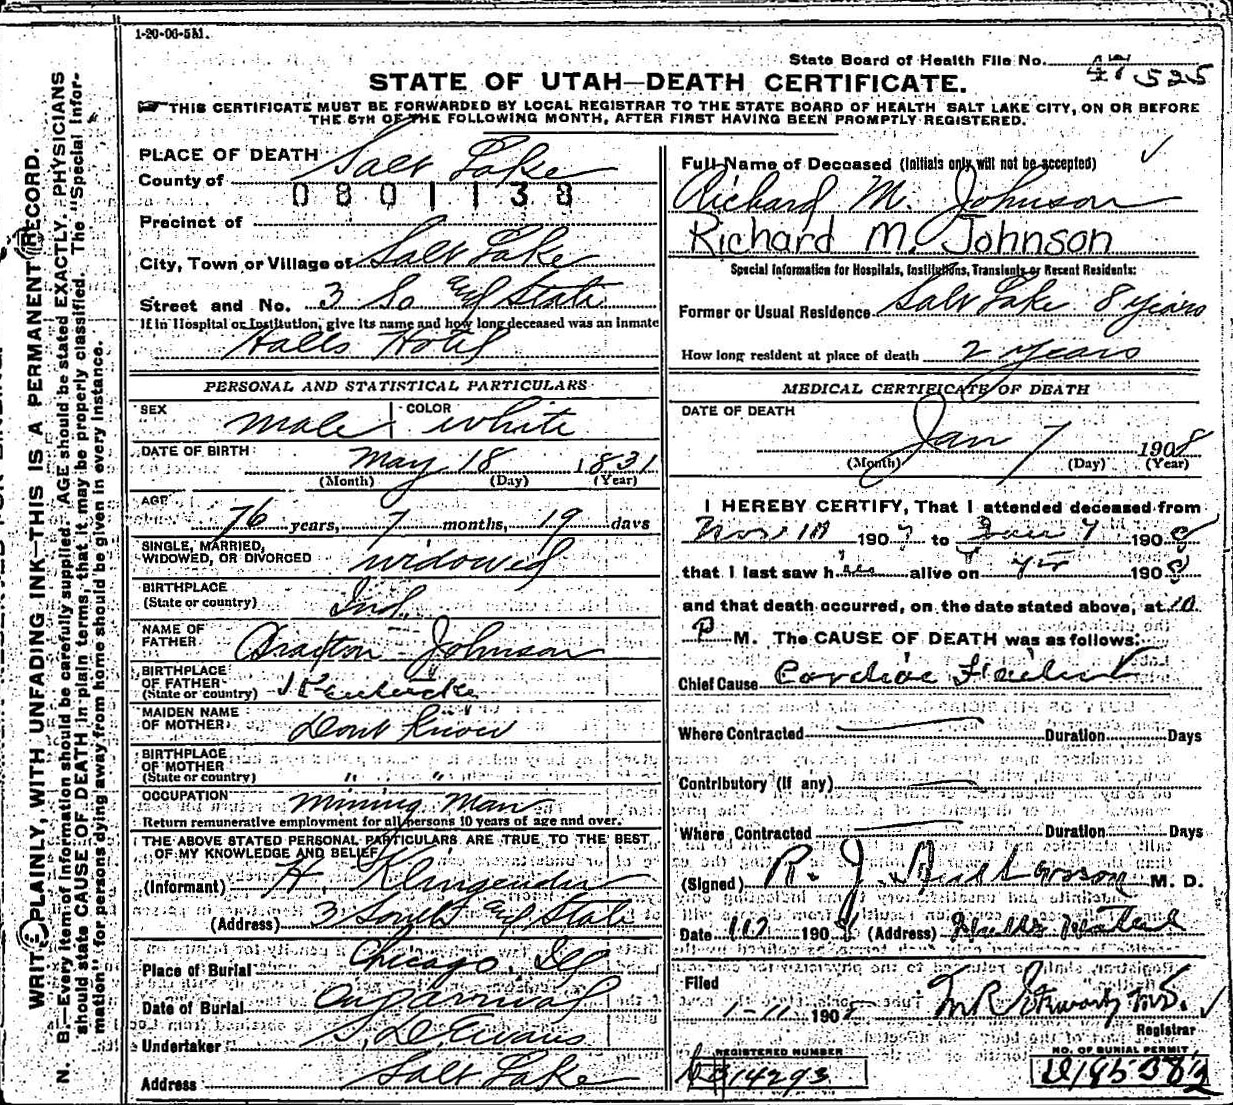 1-20-06-5M.
State Board of Health File No. 525
STATE OF UTAH—DEATH CERTIFICATE.
THIS CERTIFICATE MUST BE FORWARDED BY LOCAL REGISTRAR TO THE STATE BOARD OF HEALTH SALT LAKE CITY, ON OR BEFORE
THE 5TH OF THE FOLLOWING MONTH, AFTER FIRST HAVING BEEN PROMPTLY REGISTERED.
WRITE PLAINLY, WITH UNFADING INK—THIS IS A PERMANENT RECORD.
N. B.—Every item of information should be carefully supplied. AGE should be stated EXACTLY. PHYSICIANS
should state CAUSE OF DEATH in plain terms, that it may be properly classified. The "Special Infor-
mation" for persons dying away from home should be given in every instance.
PLACE OF DEATH
County of Salt Lake
0801138
Precinct of
City, Town or Village of Salt Lake
Street and No. 3 So and State
If in Hospital or Institution, give its name and how long deceased was an inmate
Halls Hotel
PERSONAL AND STATISTICAL PARTICULARS
SEX male COLOR white
DATE OF BIRTH May 18 1831
(Month) (Day) (Year)
AGE 76 years, 7 months, 19 days
SINGLE, MARRIED,
WIDOWED, OR DIVORCED widowed
BIRTHPLACE
(State or country) Ind.
NAME OF
FATHER Johnson
BIRTHPLACE
OF FATHER
(State or country)
MAIDEN NAME
OF MOTHER Dont Know
BIRTHPLACE
OF MOTHER
(State or country) " "
OCCUPATION Mining Man
Return remunerative employment for all persons 10 years of age and over.
THE ABOVE STATED PERSONAL PARTICULARS ARE TRUE TO THE BEST
OF MY KNOWLEDGE AND BELIEF
(Informant) H.
(Address) 3 South and State
Place of Burial Chicago, Ill
Date of Burial On arrival
Undertaker S. D. Evans
Address Salt Lake
Full Name of Deceased (Initials only will not be accepted)
Richard M. Johnson
Richard M. Johnson
Special Information for Hospitals, Institutions, Transients or Recent Residents:
Former or Usual Residence Salt Lake 8 years
How long resident at place of death 2 years
MEDICAL CERTIFICATE OF DEATH
DATE OF DEATH
Jan 7 1908
(Month) (Day) (Year)
I HEREBY CERTIFY, That I attended deceased from
1907 to Jan 7 1908
that I last saw him alive on 1908
and that death occurred, on the date stated above, at 10
P M. The CAUSE OF DEATH was as follows:
Chief Cause Cardiac
Where Contracted Duration Days
Contributory (if any)
Where Contracted Duration Days
(Signed) R. J. M. D.
Date 1908 (Address)
Filed
1-11-1908
Registrar
REGISTERED NUMBER
14293
NO. OF BURIAL PERMIT